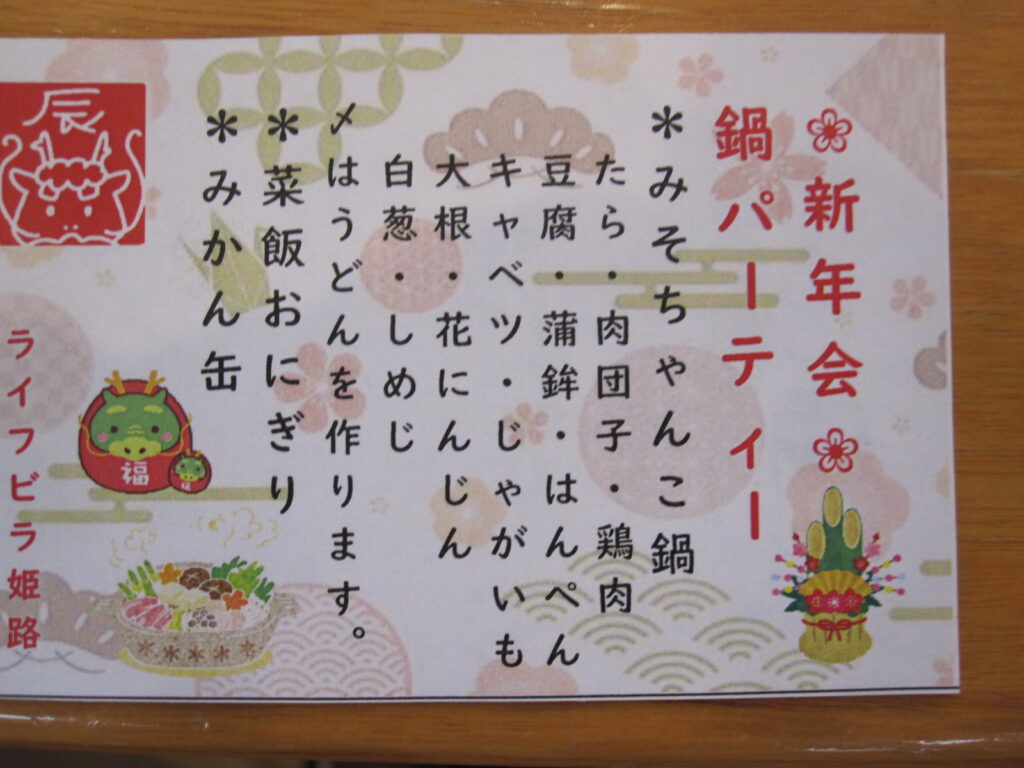 ❀新年会❀
鍋パーティー
＊みそちゃんこ鍋
たら・肉団子・鶏肉
豆腐・蒲鉾・はんぺん
キャベツ・じゃがいも
大根・花にんじん
白葱・しめじ
〆はうどんを作ります。
＊菜飯おにぎり
＊みかん缶
辰
福
ライフビラ姫路